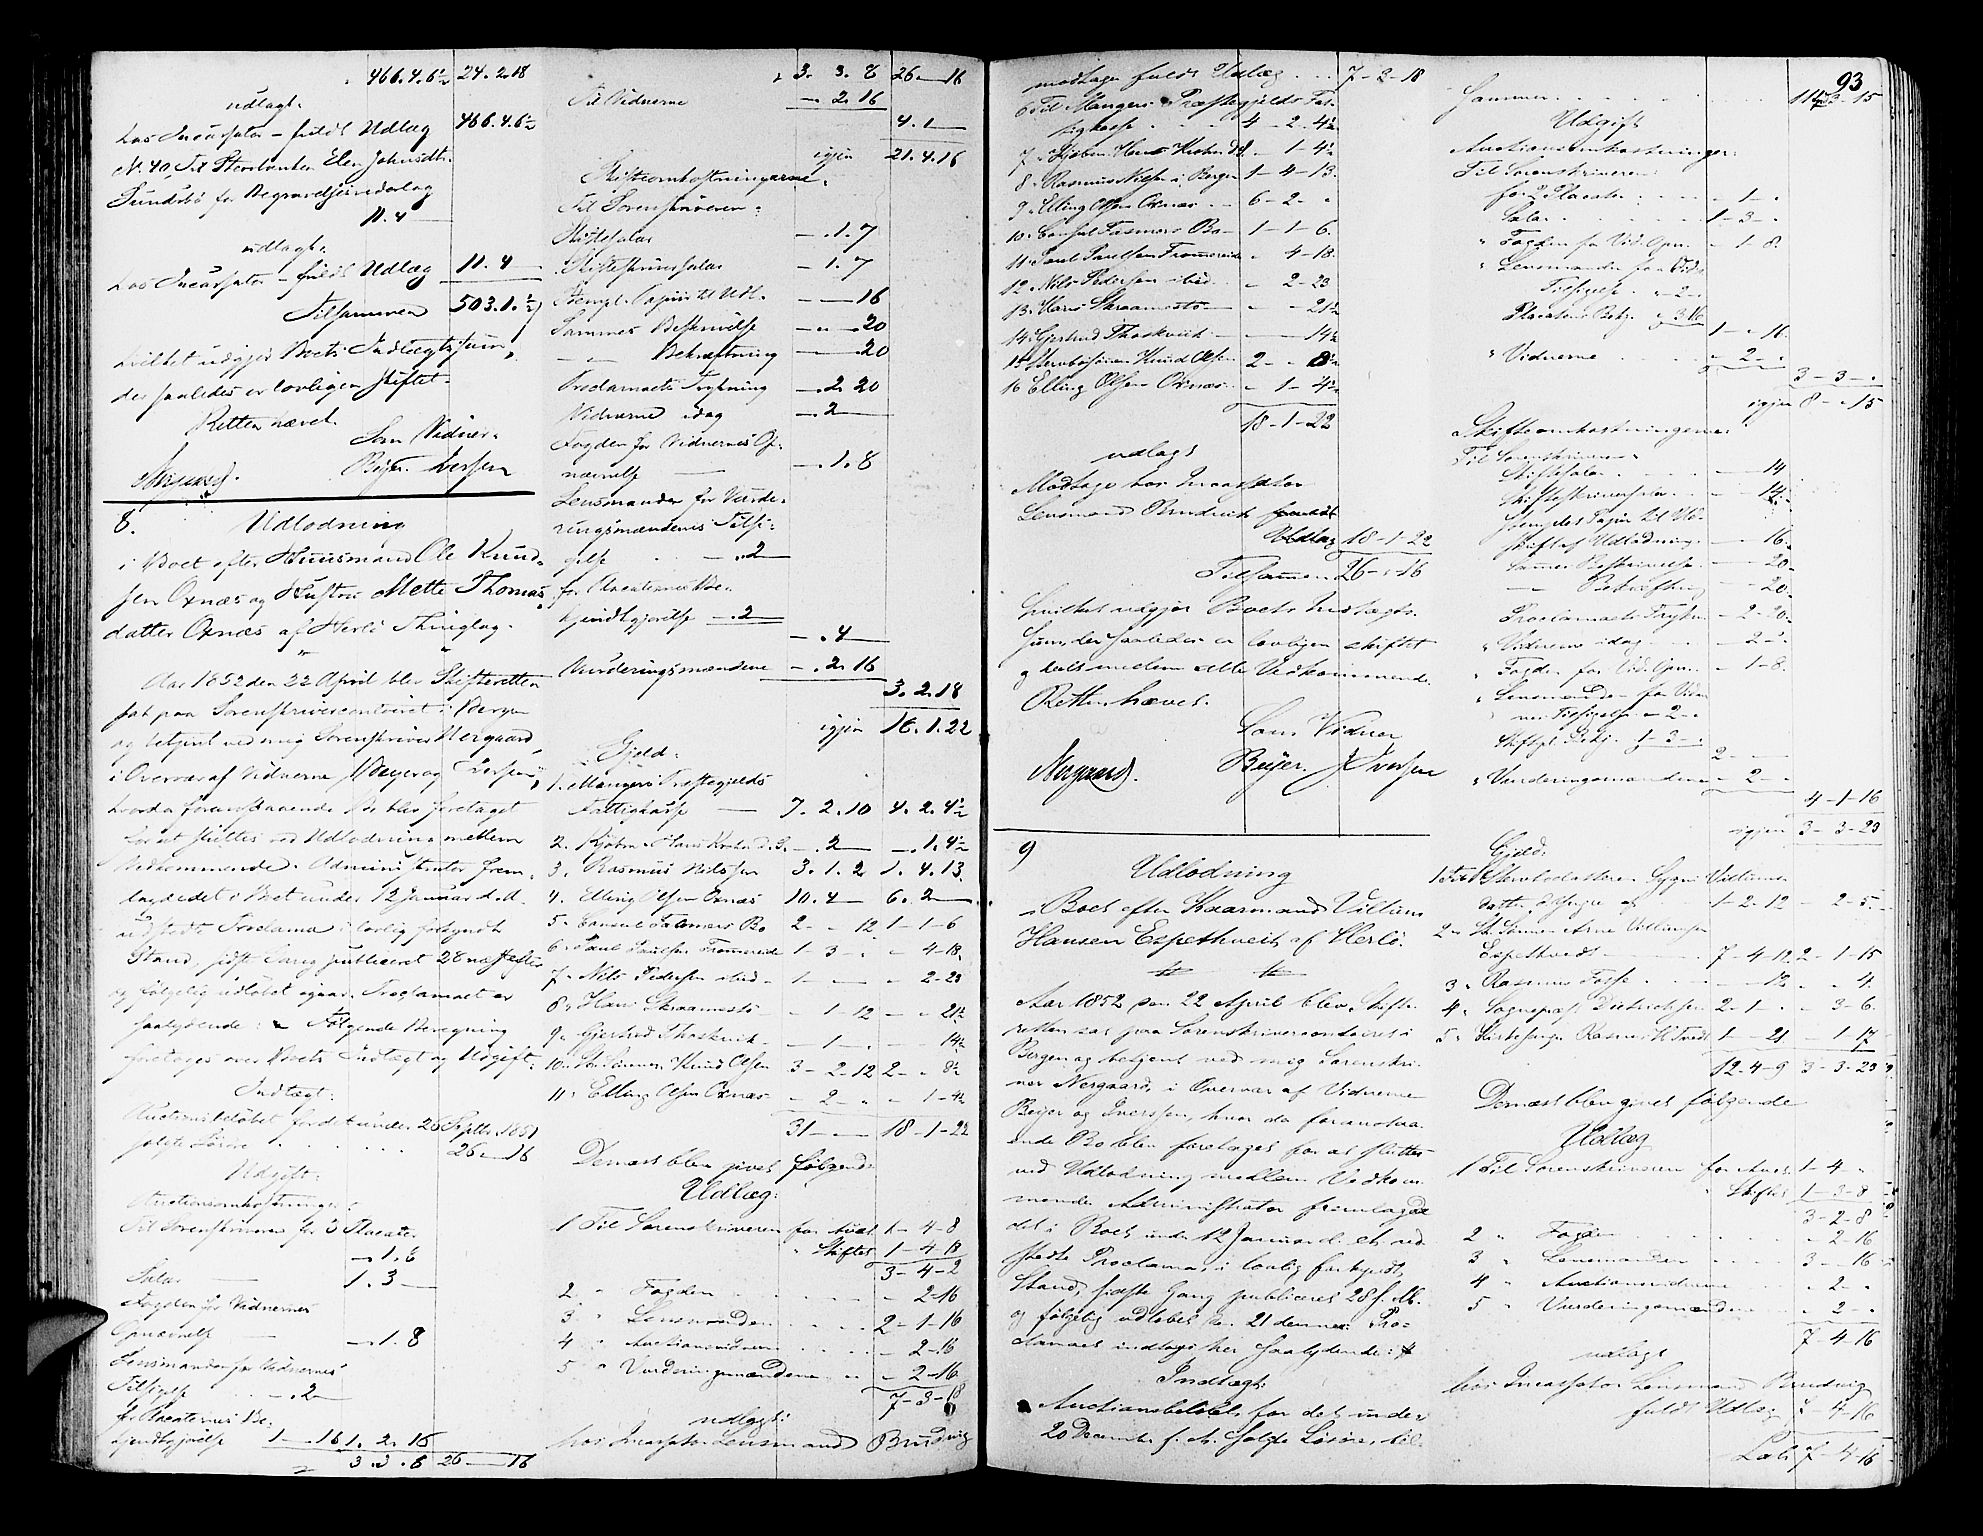 466.4.6½ 24.2.18
udlagt:
hos Incassator fuldt Udlæg 466.4.6½
N. 40, Til Elen Johnsdtr.
Sundsbø for
11.4
udlagt:
hos Incassator fuldt Udlæg 11.4
Tilsammen 503.1.½
hvilket udgjør Boets Indtægtssum,
der saaledes er lovligen skiftet.
Retten hævet.
Som Vidner.
Nergaard. Beyer. Iversen
8. Udlodning
i Boet efter Huusmand Ole Knud-
sen Oxnæs og Hustru Mette Thomas-
datter Oxnæs af Herlø Thinglag.
Aar 1852 den 22 April blev Skifteretten
sat paa Sorenskrivercontoiret i Bergen
og betjent ved mig Sorenskriver Nergaard,
i Overvær af Vidnerne Beyer og Iversen,
hvorda foranstaaende Bo blev foretaget
for at sluttes ved Udlodning mellem
Vedkommende. Administrator frem-
lagde det i Boet under 12 Januar d. A.
udstedte Proclama i lovlig forkyndt
Stand, sidste Gang publiceret 28
og følgelig udløbet igaar. Proclamaet er
saalydende: Følgende Beregning
foretoges over Boets Indtægt og Udgift:
Indtægt:
Auctionsbeløbet for det under 26 Septbr. 1851
solgte Løsøre 26 - 16
Udgift:
Auctionsomkostninger:
Til Sorenskriveren for 3 Placater
- 1.6
Salar 1.3 -
Fogden for Vidnernes
Opnævnelse - 1.8
Lensmanden for Vidnernes
Tilsigelse - 2 -
for Placaternes Be-
kjendtgjørelse 1 - 16 1.2.16
3.3.6 26 - 16
3. 3. 6 26 - 16
Til Vidnerne - 2.16
4.1 -
igjen 21.4.16
Skifteomkostningerne:
Til Sorenskriveren:
Skiftesalar - 1.7
Skifteskriversalar - 1.7
Stempl. Papiir til Udl. - 16
Sammes Beskrivelse - 20
Bekræftning - 20
Proclamaets Trykning - 2.20
Vidnerne idag - 2 -
Fogden for Vidnernes Op-
nævnelse - 1.8
Lensmanden for Vurde-
ringsmændenes Tilsi-
gelse - 2
for Placaternes Be-
kjendtgjørelse - 2
- 4 -
Vurderingsmændene - 2.16
3.2.18
igjen 18.1.22
Gjeld:
1. Mangers Præstegjelds
Fattigkasse 7.2.10 4.2.4½
2. Kjøbm. Hans Krohn - 2 - - 1.4½
3. Rasmus Nilssen 3.1.2 1.4.13.
4. Elling Olsen Oxnæs 10.4 - 6.2 -
5. Consul Fasmers Bo 2 - 12 1-1-6
6. Paul Paulsen Frommereide 1-3 - 4-18.
7. Nils Pedersen ibid 1 - 2-23
8. Hans Skraamestø - 1-12 - 21½
9. Gjertrud Thoskvik - 1 - 14½
10. St. Sønnen Knud Olsen 3-2-12 2 - 8½
11. Elling Olsen Oxnæs - 2 - - 1-4½
31 - 18-1-22
Dernæst blev givet følgende
Udlæg:
1 Til Sorenskriveren for Auct. 1-4-8
Skiftet 1-4-18
3-4-2
2 " Fogden - 2-16
3 " Lensmanden 2-1-16
4 " Auctionsvidnerne - 2-16
5 " Vurderingsmændene - 2-16
7-3-18
udlagt:
hos Incassator Lensmand Brudvig
modtage fuldt Udlæg 7-2-18
6 Til Mangers Præstegjelds Fat-
tigkasse 4-2-4½
7 " Kjøbm. Hans Krohn - 1-4½
8 " Rasmus Nilsen i Bergen 1-4-13.
9 " Elling Olsen Oxnæs 6-2-"
10 " Consul Fasmers Bo 1-1-6.
11 " Paul Paulsen Frommereide " 4-18.
12 " Nils Pedersen ibid - 2-23
13 " Hans Skraamestø - 21½
14 " Gjertrud Thoskvik - 14½
15 " Sterbosønnen Knud Olsen 2 - 8½
16 Elling Olsen Oxnæs - 1-4½
18-1-22
udlagt
Modtage hos Incassator
Lensmand Brudvik fuldt
Udlæg 18-1-22
Tilsammen 26 - 16
hvilket udgjør Boets Indtægts-
sum, der saaledes er lovligen skiftet
og delt mellem alle Vedkommende.
Retten hævet.
Som Vidner
Nergaard. Beyer. Iversen
9
Udlodning
i Boet efter Kaarmand Villum
Hansen Espethveit af Herlø.
Aar 1852 den 22 April blev Skifte-
retten sat paa Sorenskrivercontoiret i
Bergen og betjent ved mig Sorenskri-
ver Nergaard, i Overvær af Vidnerne
Beyer og Iversen, hvor da foranstaa-
ende Bo blev foretaget for at sluttes
ved Udlodning mellem Vedkom-
mende. Administrator fremlagde
det i Boet under 12 Januar d. A. ud-
stedte Proclama, i lovlig forkyndt
Stand, sidste Gang publiceret 28 f. M.
og følgelig udløbet den 21 dennes. Pro-
clamaet indtages her saalydende:
Indtægt:
Auctionsbeløbet for det under
20 December f. A. solgte Løsøre, til-
93
sammen 11 - 3 - 15
Udgift
Auctionsomkostninger:
Til Sorenskriveren:
for 2 Placater - 1 -
Salar 1-3-
" Fogden for Vid. Opn. - 1-8.
" Lensmanden for Vidn.
Tilsigelse - 2 -
Placaters Bekj. - 3.16
1 - 16.
" Vidnerne - 2 -
3-3-
igjen 8 - 15
Skifteomkostningerne:
Til Sorenskriveren
Skiftesalar - 14
Skifteskriversalar - 14
Stemplet Papir til Ud-
skrift af Udlodning - 16
Sammes Beskrivelse - 20
Bekræftning - 20
Proclamaets Trykn. - 2-20
" Vidnerne idag - 2-
" Fogden for Vid. Opn. - 1-8.
" Lensmanden for Vidner-
nes Tilsigelse - 2 -
Bekj. 1-3-
2 -
" Vurderingsmændene - 2 -
4-1-16
igjen 3-3-23
Gjeld:
1 Til Sterbodatteren Sygni Villums-
datter 1-2-12 - 2-5.
2 St. Sønnen Arne Villumsen
Espethvedt 7-4-12 2-1-15
3 " Rasmus Fosse - 12 - 4.
4 " Sogneprest Dietrichsen 2-1- - 3-6.
5 " Kirkesanger Rasmus Tvedt 1-21 - 1-17
12-4-9 3-3-23
Dernæst blev givet følgende
Udlæg
1 Til Sorenskriveren for Auct. 1-4 "
Skiftet 1-3-8
3-2-8
2 " Fogden - 2-16
3 " Lensmanden 3 - 16
4 " Auctionsvidnerne - 2 -
5 " Vurderingsmændene - 2 -
7-4-16
udlagt
hos Incassator Lensmand Brudvig
fuldt Udlæg 7-4-16
Lats 7-4-16